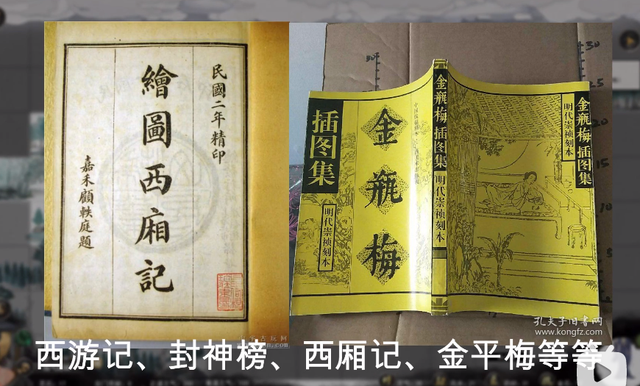 民國二年精印
繪圖西廂記
嘉禾顧軼庭題
插图集
金瓶梅
明代崇祯刻本
金瓶梅 插图集
明代崇祯刻本
金瓶梅插图集
明代崇祯刻本
孔夫子旧书网
www.kongfz.com
西游记、封神榜、西厢记、金平梅等等